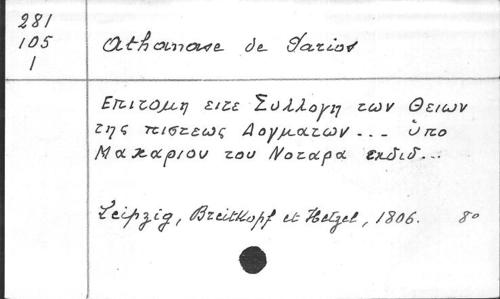 281
105
1
Athanase de Parios
Επιτομη ειτε Συλλογη των Θειων
της πιστεως Δογματων... ὑπο
Μακαριου του Νοταρα εκδιδ...
Leipzig, Breitkopf et Hetzel, 1806. 8º